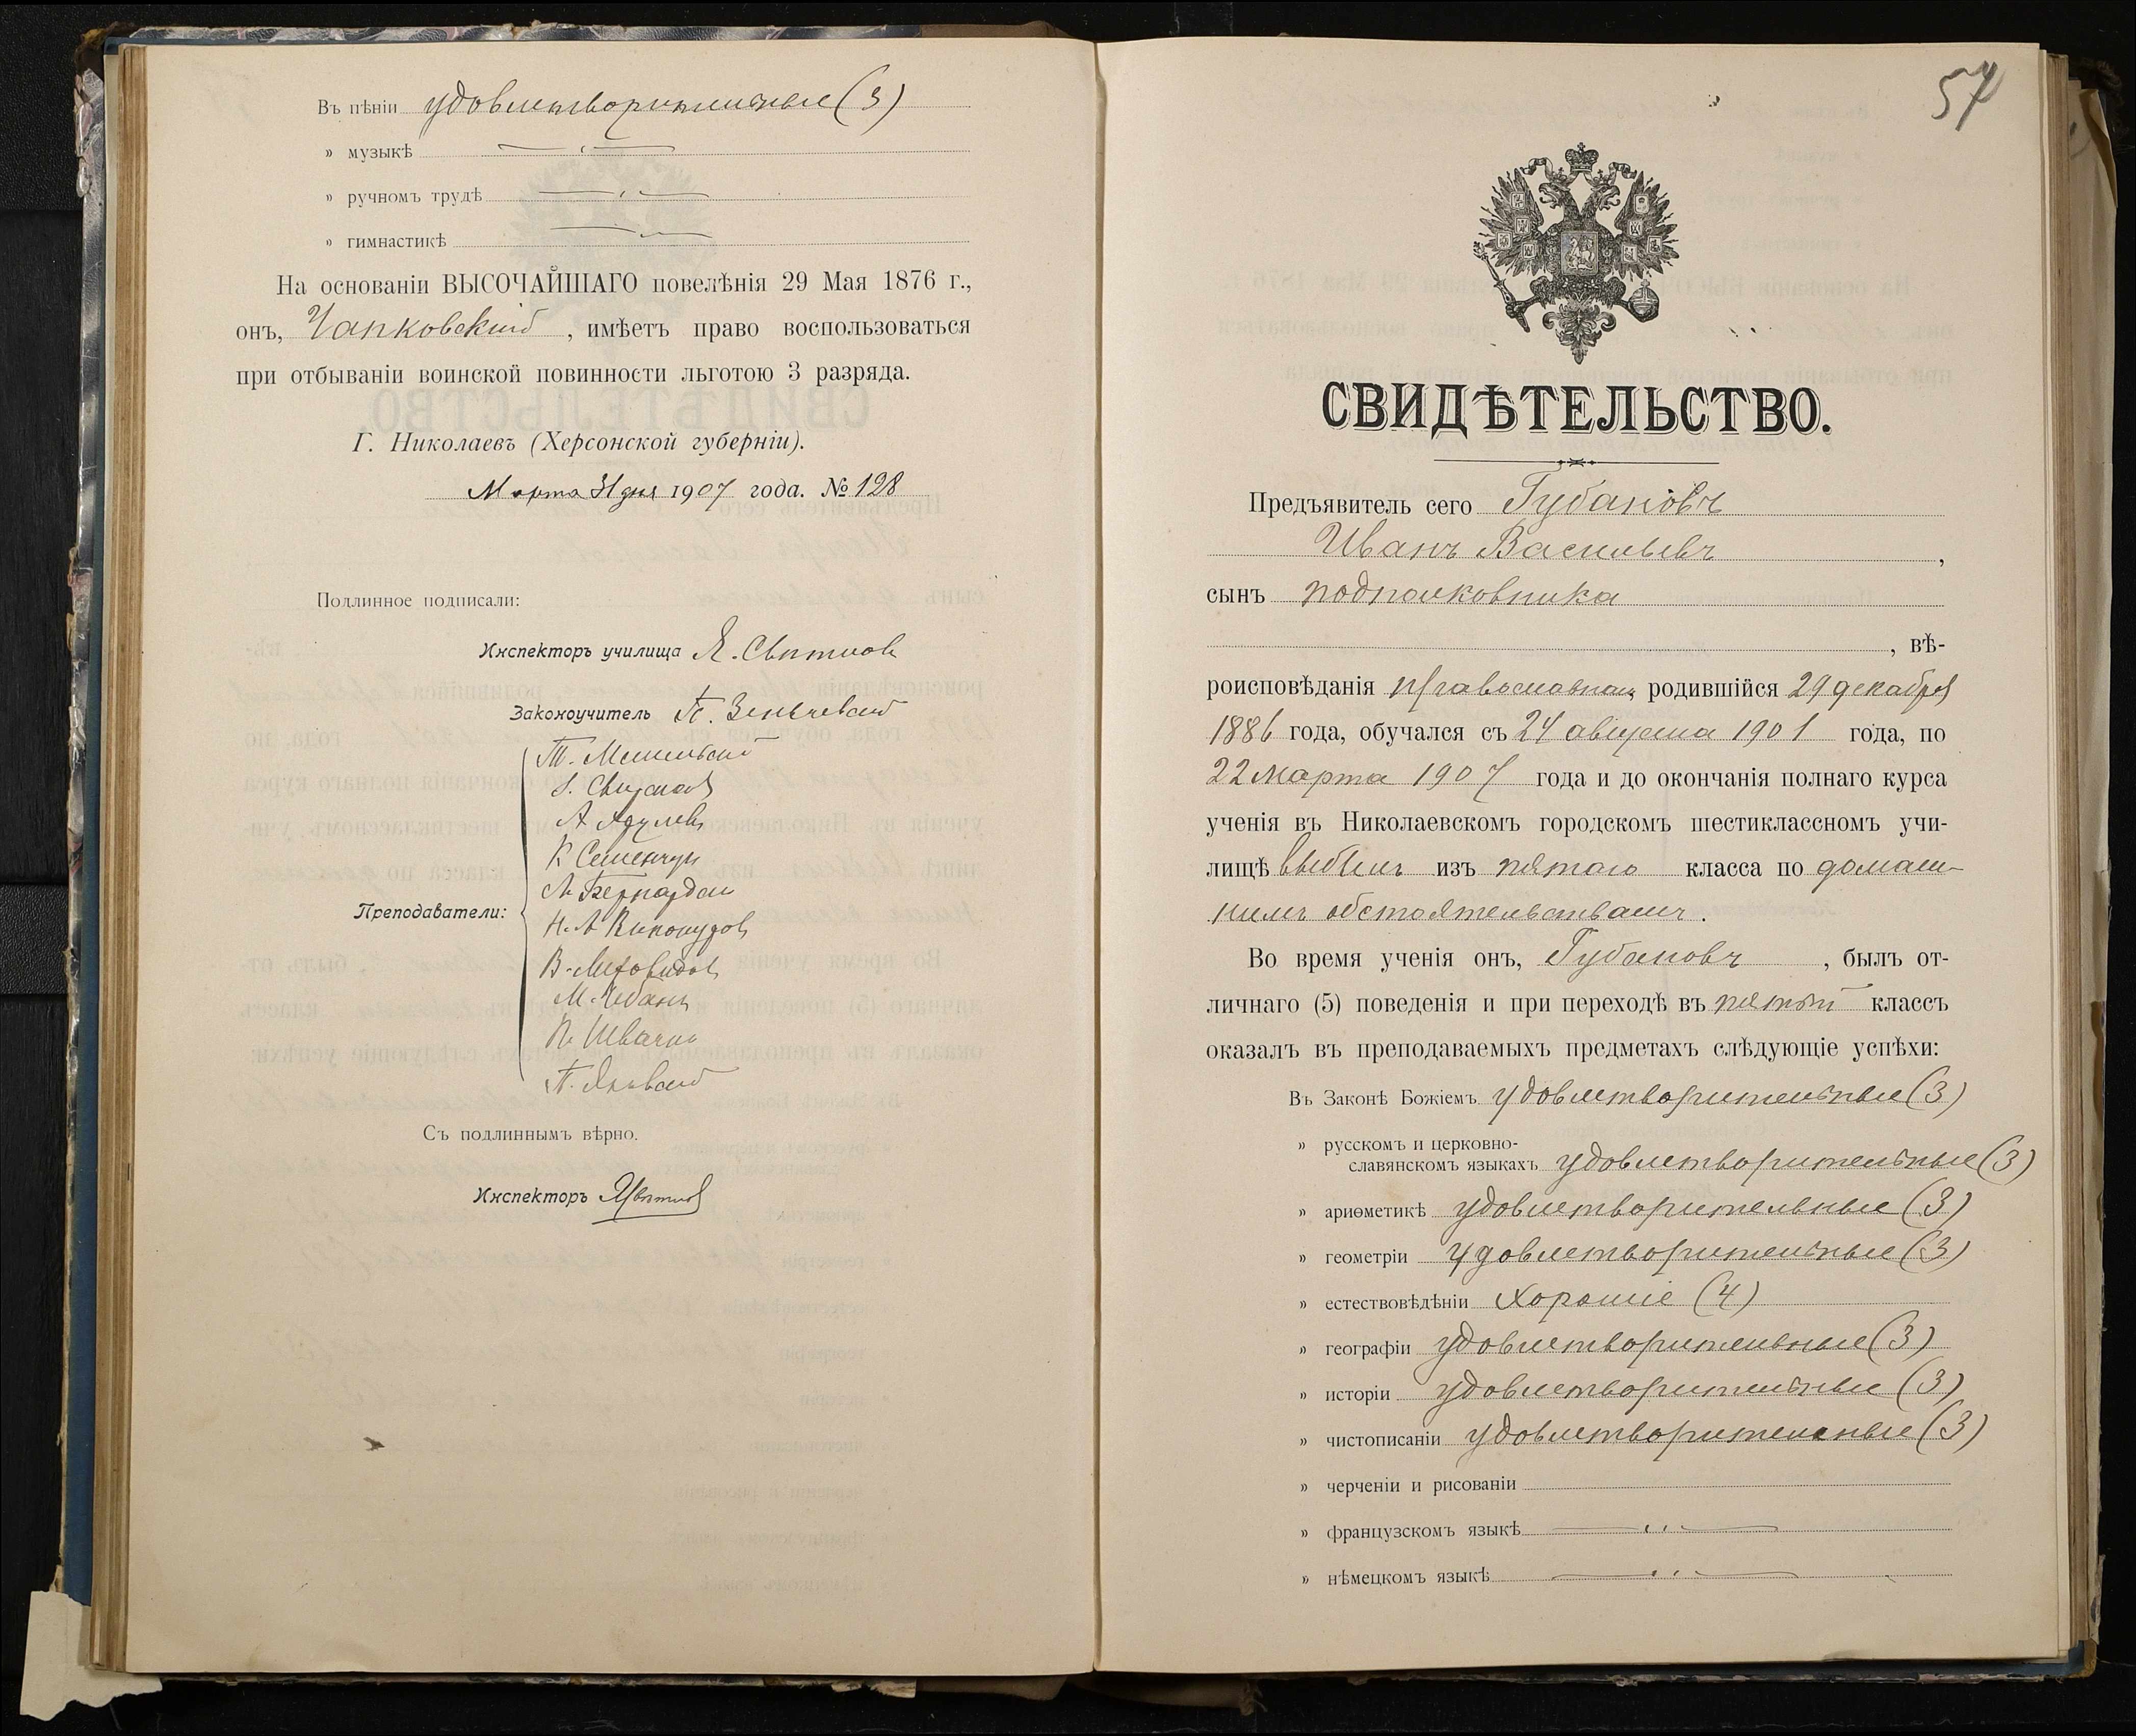 Въ пѣніи удовлетворительные (3)
» музыкѣ
» ручномъ трудѣ
» гимнастикѣ
На основаніи ВЫСОЧАЙШАГО повелѣнія 29 Мая 1876 г.,
онъ, Чапковскій, имѣетъ право воспользоваться
при отбываніи воинской повинности льготою 3 разряда.
Г. Николаевъ (Херсонской губерніи).
Марта 31 дня 1907 года. № 128
Подлинное подписали:
Инспекторъ училища Я. Свѣтлов
Законоучитель П.
Преподаватели:
А.
К Семенчук
А. Бернардаки
В. Лиховидов
М. Чебан
П. Швачко
П. Яновскій
Съ подлиннымъ вѣрно.
Инспекторъ
57
СВИДѢТЕЛЬСТВО.
Предъявитель сего Губановъ
Иванъ Васильевъ,
сынъ подполковника
, вѣ-
роисповѣданія православнаго, родившійся 29 декабря
1886 года, обучался съ 24 августа 1901 года, по
22 марта 1907 года и до окончанія полнаго курса
ученія въ Николаевскомъ городскомъ шестиклассномъ учи-
лищѣ выбылъ изъ пятаго класса по домаш-
нимъ обстоятельствамъ.
Во время ученія онъ, Губановъ, былъ от-
личнаго (5) поведенія и при переходѣ въ пятый классъ
оказалъ въ преподаваемыхъ предметахъ слѣдующіе успѣхи:
Въ Законѣ Божіемъ удовлетворительные (3)
» русскомъ и церковно-
славянскомъ языкахъ удовлетворительные (3)
» ариѳметикѣ удовлетворительные (3)
» геометріи удовлетворительные (3)
» естествовѣдѣніи хорошіе (4)
» географіи удовлетворительные (3)
» исторіи удовлетворительные (3)
» чистописаніи удовлетворительные (3)
» черченіи и рисованіи
» французскомъ языкѣ
» нѣмецкомъ языкѣ